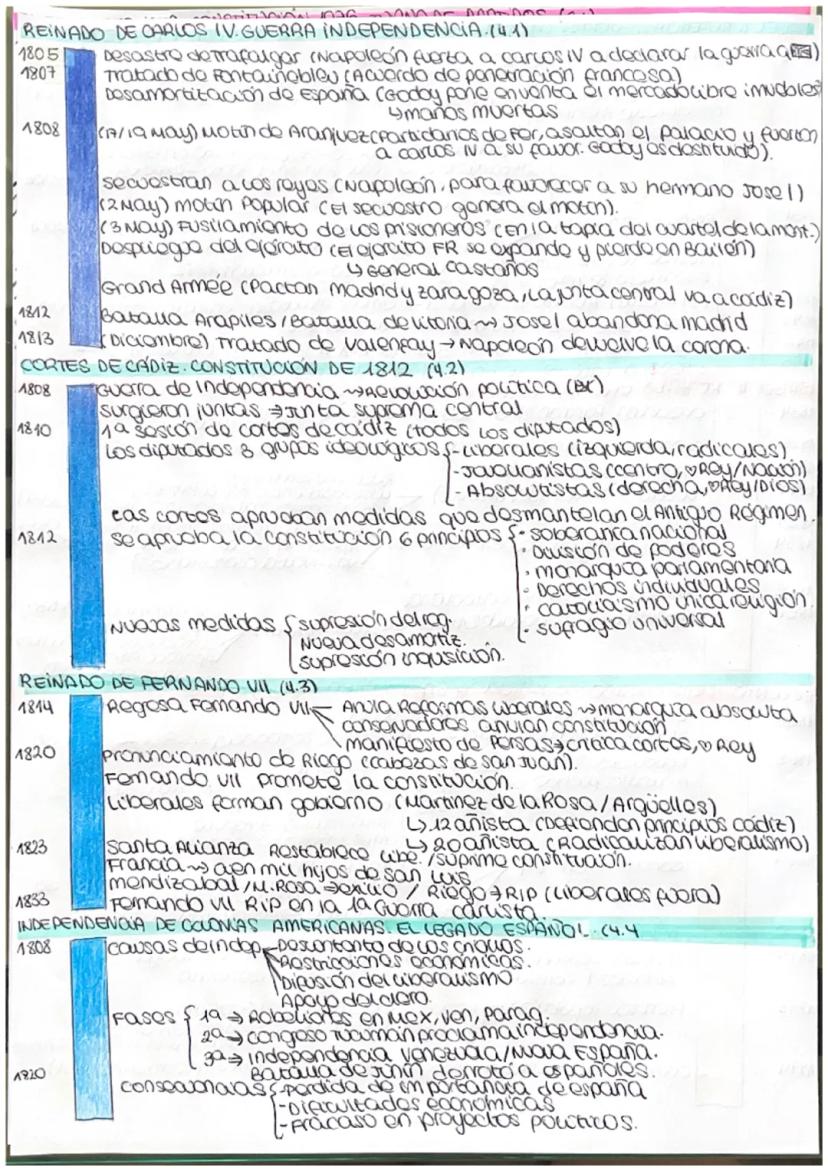 REINADO DE CARLOS IV. GUERRA INDEPENDENCIA. (4.1)
1805 Desastre de Trafalgar (Napoleón fuerza a carlos IV a declarar la guerra a
1807 Tratado de Fontainebleu (Acuerdo de penetración francesa)
Desamortización de España (Godoy pone en venta el mercado libre imuebles
↳ manos muertas
1808 (17/19 May) Motín de Aranjuez (Partidarios de Fer, asaltan el palacio y fuerzan
a carlos IV a su favor. Godoy es destituido).
secuestran a los reyes (Napoleón, para favorecer a su hermano Jose I)
(2 May) motín popular (El secuestro genera el motín).
(3 May) Fusilamiento de los prisioneros (En la tapia del cuartel de la mont.)
Despliegue del ejército (El ejercito FR se expande y pierde en Bailén)
↳ General Castaños
Grand Armée (Pactan madrid y zaragoza, La junta central va a cádiz)
1812 Batalla Arapiles / Batalla de vitoria → Jose I abandona madrid
1813 (Diciembre) Tratado de Valençay → Napoleón devuelve la corona.
CORTES DE CÁDIZ. CONSTITUCIÓN DE 1812 (4.2)
1808 Guerra de Independencia → Revolución política
surgieron juntas ⇒ Junta suprema central
1810 1ª sesión de cortes de cádiz (todos los diputados)
Los diputados 3 grupos ideológicos { - Liberales (izquierda, radicales)
- Jovellanistas (centro, ♡ Rey/Nación)
- Absolutistas (derecha, ♡ Rey/Dios)
Las cortes aprueban medidas que desmantelan el Antiguo Régimen.
1812 se aprueba la constitución 6 principios { · soberanía nacional
· División de poderes
· monarquía parlamentaria
· Derechos individuales
· catolicismo única religión
· sufragio universal
Nuevas medidas { supresión del reg.
Nueva desamortiz.
supresión inquisición.
REINADO DE FERNANDO VII (4.3)
1814 Regresa Fernando VII Anula Reformas liberales → monarquía absoluta
conservadores anulan constitución
manifiesto de Persas → critica cortes, ♡ Rey
1820 Pronunciamiento de Riego (Cabezas de San Juan).
Fernando VII promete la constitución.
Liberales forman gobierno (Martínez de la Rosa / Argüelles)
↳ 12 añista (Defienden principios cádiz)
↳ 20 añista (Radicalizan liberalismo)
1823 Santa Alianza Restablece libe. / suprime constitución.
Francia → cien mil hijos de san Luis
mendizabal / M. Rosa ⇒ exilio / Riego → RIP (Liberales fuera)
1833 Fernando VII RIP en la 1a Guerra carlista.
INDEPENDENCIA DE COLONIAS AMERICANAS. EL LEGADO ESPAÑOL. (4.4
1808 causas de indep Descontento de los criollos.
Restricciones económicas.
Difusión del liberalismo
Apoyo del clero.
Fases { 1ª → Rebeliones en Mex, Ven, Parag.
2ª → congreso Tucumán proclama independencia.
3ª → independencia Venezuela / Nueva España.
Batalla de Junín derrotó a españoles.
1820 consecuencias { - Perdida de importancia de españa
- Dificultades económicas
- Fracaso en proyectos políticos.